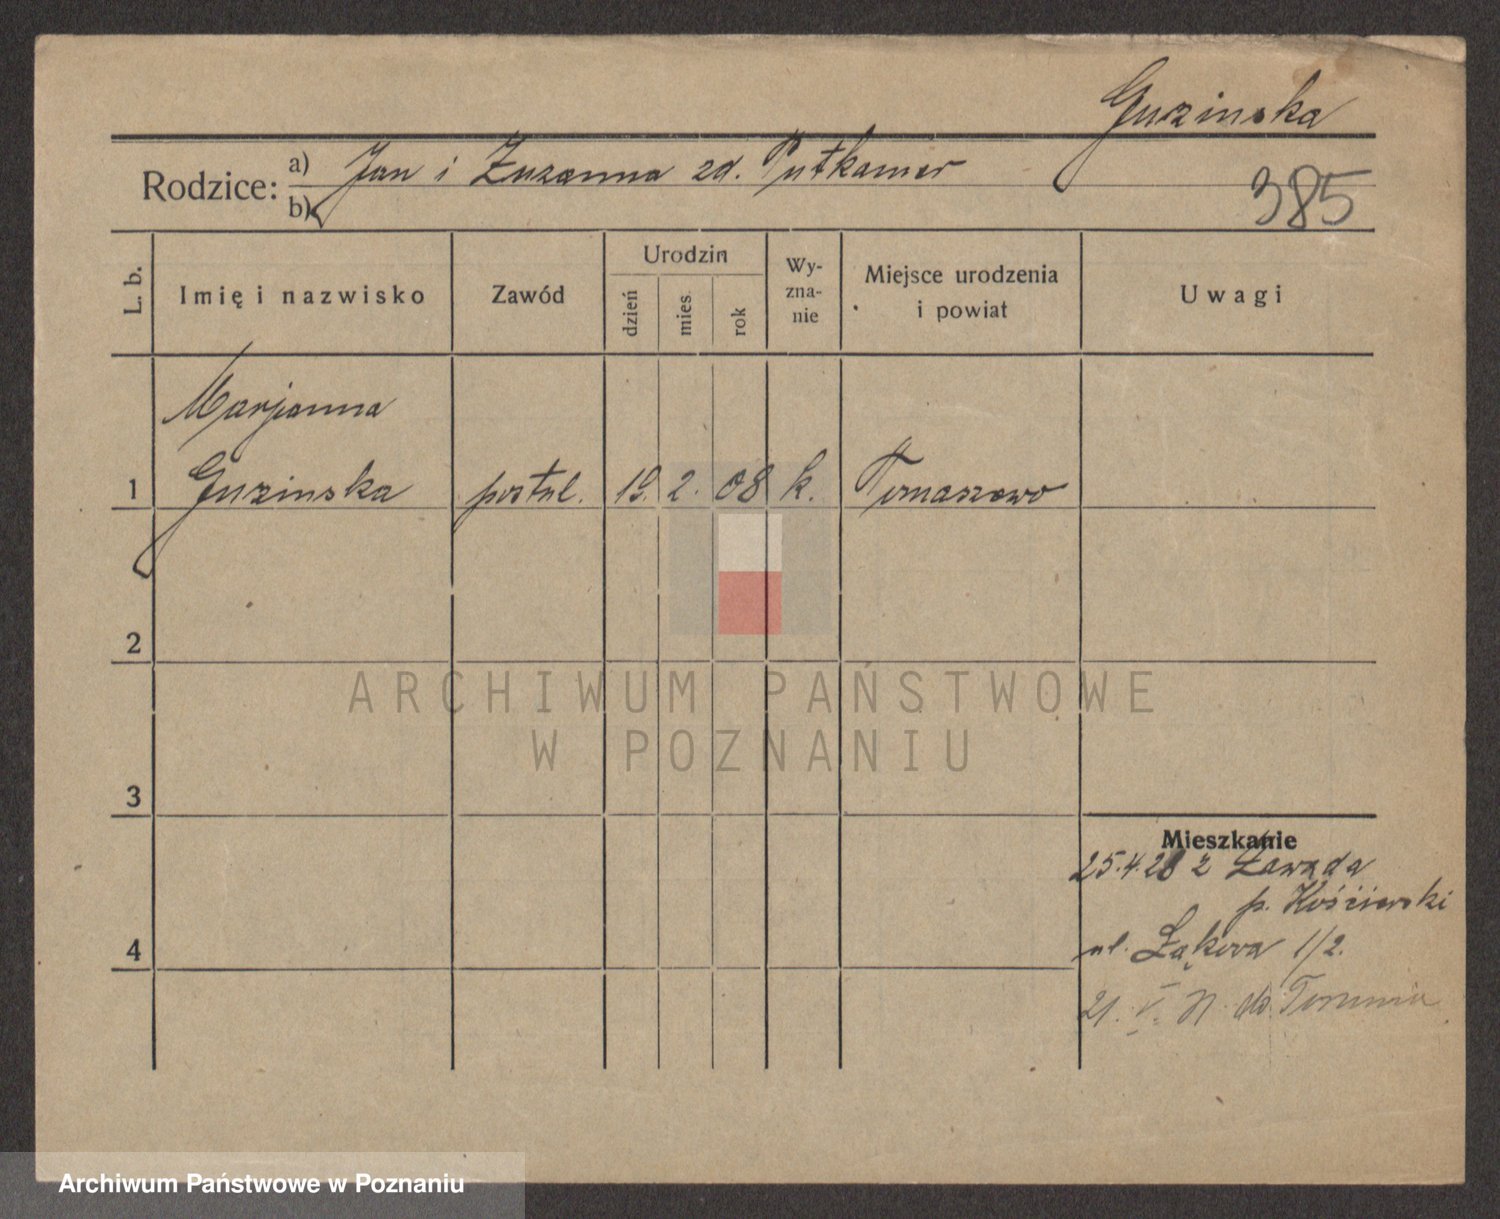 Guzinska
Rodzice: a) Jan i Zuzanna zd. Putkamer
b)
385
L. b.
Imię i nazwisko
Zawód
Urodzin
dzień
mies.
rok
Wy-
zna-
nie
Miejsce urodzenia
i powiat
Uwagi
Marjanna
1 Guzinska postul. 19. 2. 08 k. Tomaszewo
2
ARCHIWUM PAŃSTWOWE
W POZNANIU
3
Mieszkanie
25.4.28 z Zawada
p.
4
ul. Łąkowa 1/2.
21. V. do Torunia
Archiwum Państwowe w Poznaniu